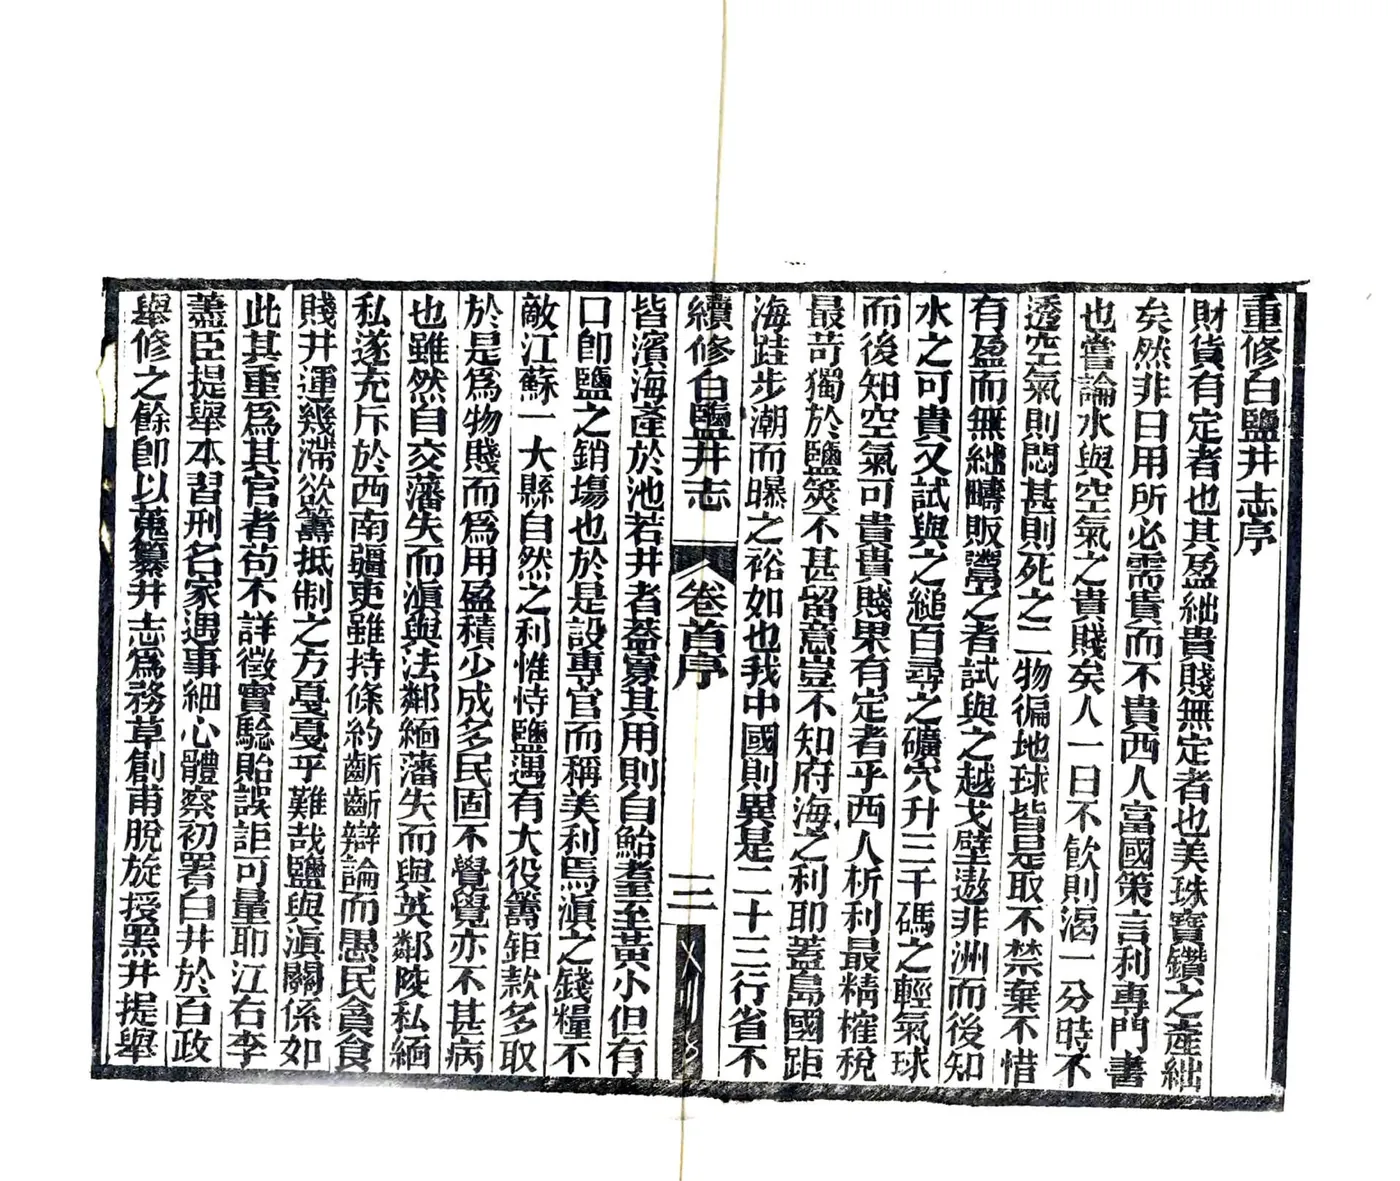 重修白鹽井志序
財貨有定者也其盈絀貴賤無定者也美珠寶鑽之產絀
矣然非日用所必需貴而不貴西人富國策言利專門書
也嘗論水與空氣之貴賤矣人一日不飲則渴一分時不
透空氣則悶甚則死之二物徧地球皆是取不禁棄不惜
有盈而無絀疇販鬻之者試與之越戈壁遨非洲而後知
水之可貴又試與之縋百尋之礦穴升三千碼之輕氣球
而後知空氣可貴貴賤果有定者乎西人析利最精榷稅
最苛獨於鹽筴不甚留意豈不知府海之利耶蓋島國距
海跬步潮而曝之裕如也我中國則異是二十三行省不
續修白鹽井志 卷首序 三
皆濱海產於池若井者蓋寡其用則自鮐耊至黃小但有
口卽鹽之銷塲也於是設專官而稱美利焉滇之錢糧不
敵江蘇一大縣自然之利惟恃鹽遇有大役籌鉅款多取
於是爲物賤而爲用盈積少成多民固不覺覺亦不甚病
也雖然自交藩失而滇與法鄰緬藩失而與英鄰陵私緬
私遂充斥於西南疆吏雖持條約齗齗辯論而愚民貪食
賤井運幾滯欲籌抵制之方戞戞乎難哉鹽與滇關係如
此其重爲其官者茍不詳徵實驗貽誤詎可量耶江右李
藎臣提舉本習刑名家遇事細心體察初署白井於百政
舉修之餘卽以蒐纂井志爲務草創甫脫旋授黑井提舉